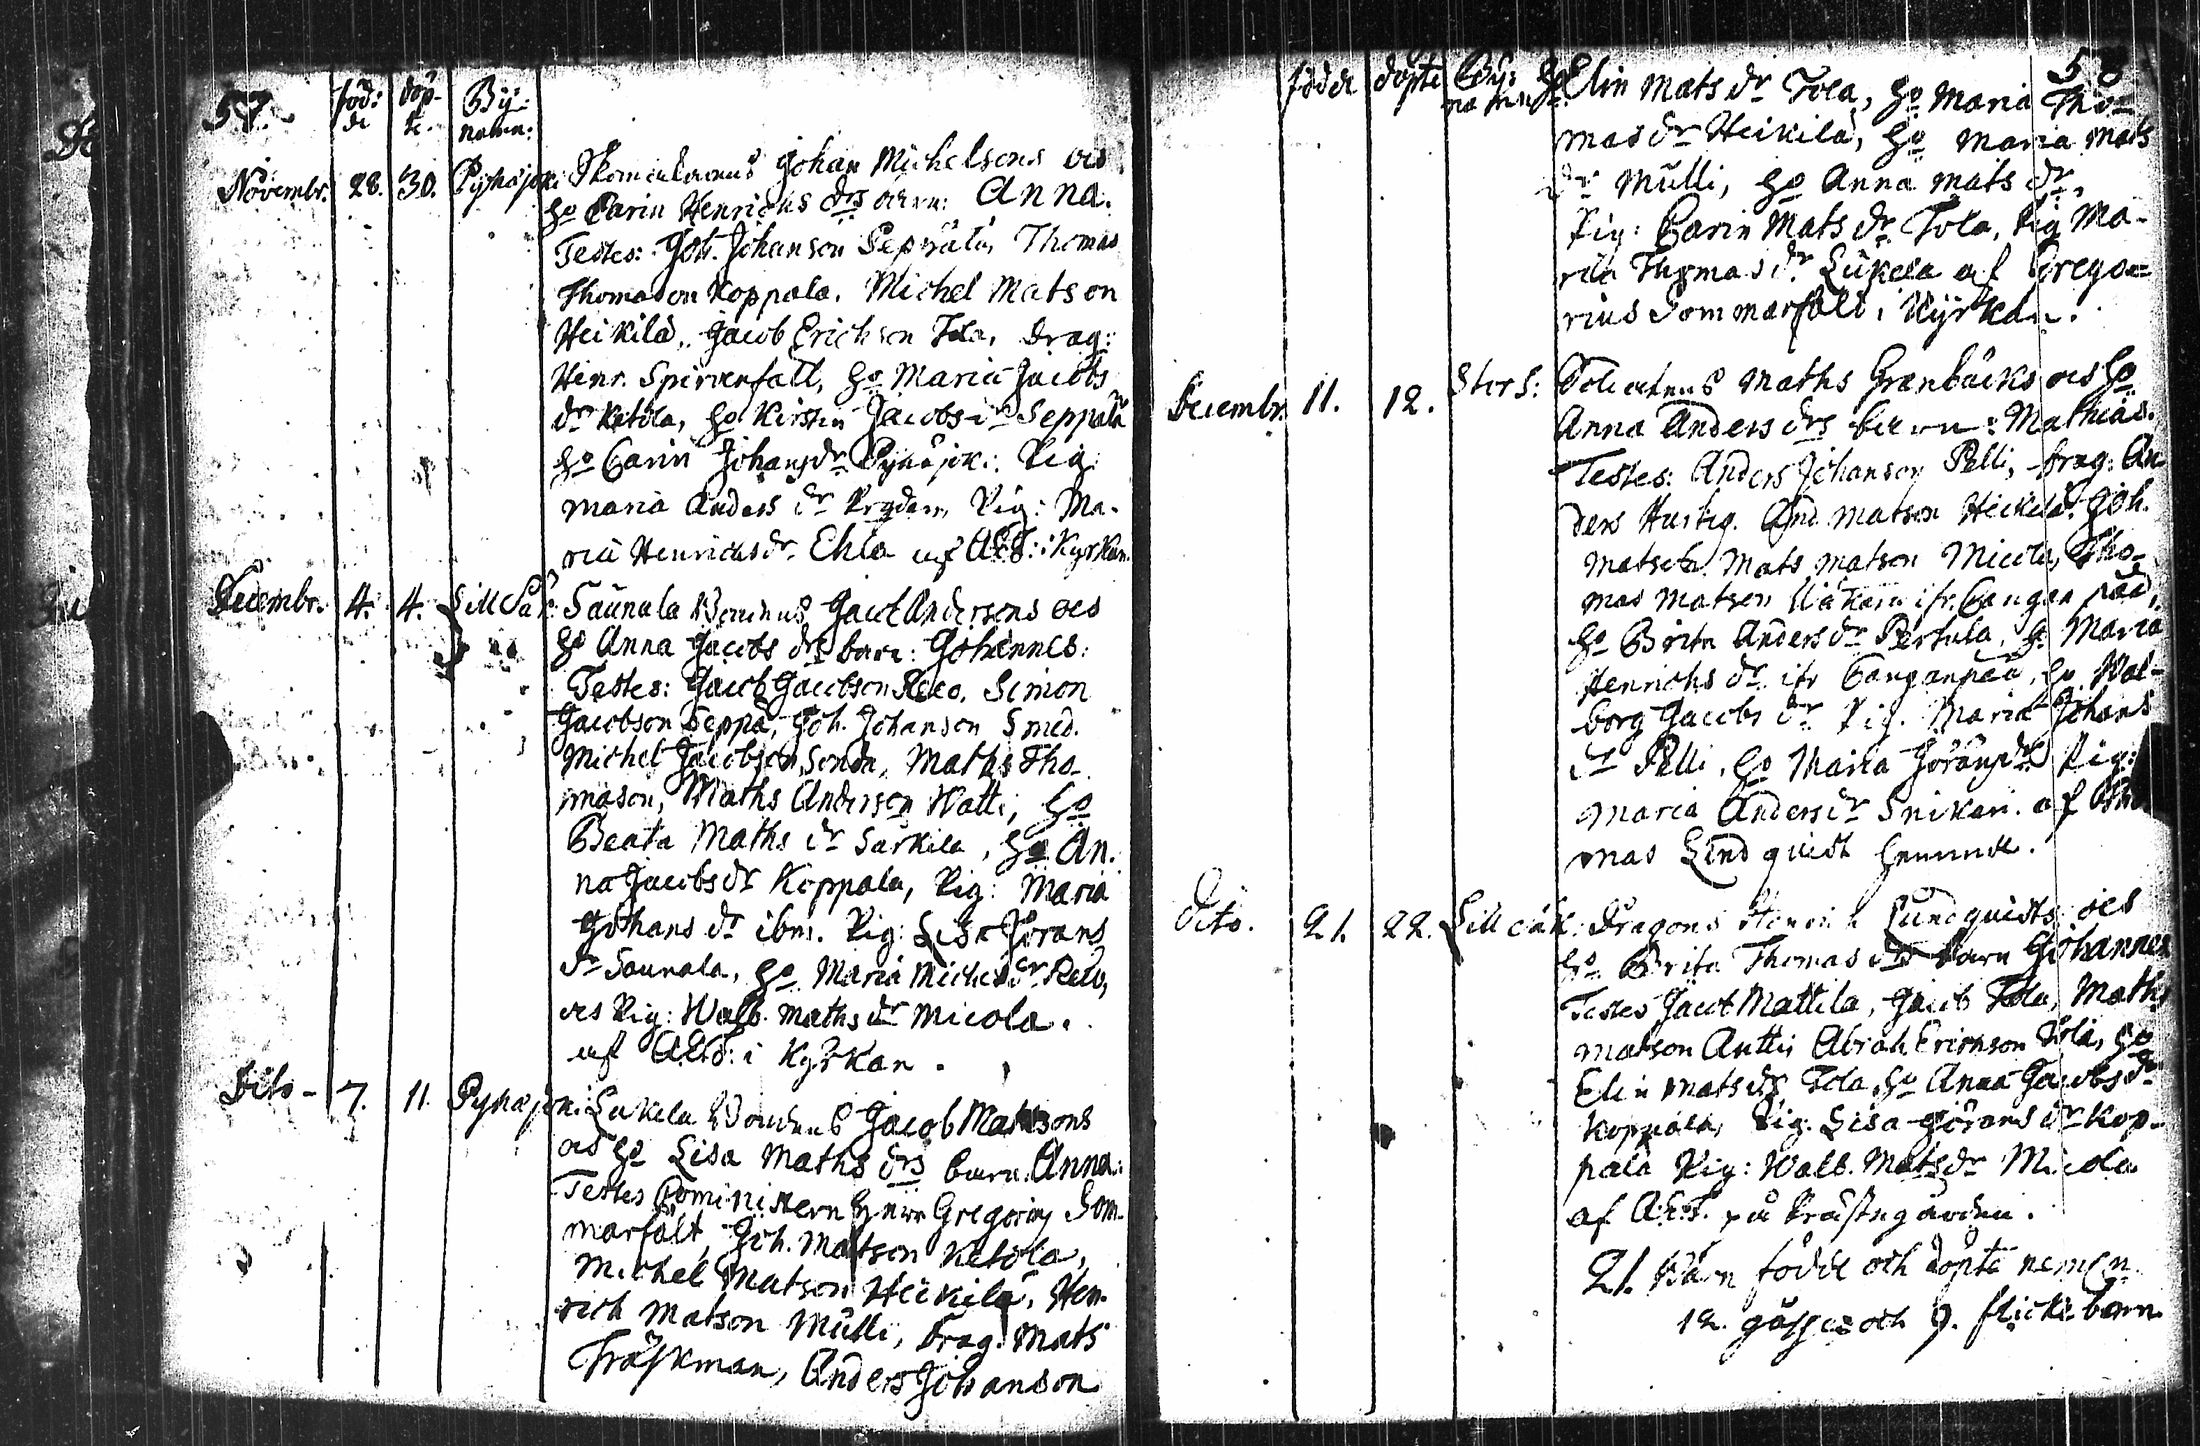 57.
föd: de
döp- te.
By: namn:
Novembr. 28. 30. Pyhajoki Johan Michelsons oes
ho Carin Henrichs drs barn: Anna.
Testes: Joh. Johanson Seppälä, Thomas
Thomason Koppala. Michel Matson
Heikilä, Jacob Erichson Tola, Drag:
Henr. Spirvenfalt, ho Maria Jacobs
dr Ketola, ho Kirstin Jacobs dr Seppälä
ho Carin Johansdr Pyhajoki. Pig:
Maria Anders dr Pig: Ma-
ria Henrichsdr. Ehla af i Kyrkan.
Decembr. 4. 4. Lill Saunala Jacob Andersons oes
ho Anna Jacobs drs barn: Johannes:
Testes: Jacob Jacobson Simon
Jacobson Seppä, Joh. Johanson Smed.
Michel Jacobson Maths Tho-
mason, Maths Anderson Watti, ho
Beata Maths dr Särkila, ho An-
na Jacobsdr Koppala, Pig: Maria
Johans dr ibm. Pig: Lisa Jörans
dr Saunala, ho Maria Michelsdr
oes Pig: Walb. Maths dr Micola.
af i Kyrkan.
Dito - 7. 11. Pyhajoki Jacob Matsons
oes ho Lisa Maths drs barn Anna:
Testes Cominstern Herr Gregorius Som-
marfält, Joh. Matson Ketola,
Michel Matson Heikilä, Hen-
rich Matson Mulli, Drag. Mats
Träskman, Anders Johanson
58
födde döpte By: namn
Elin Mats dr Tola, ho Maria Tho-
mas dr Heikilä, ho Maria Mats
dr Mulli, ho Anna Mats dr,
Pig: Carin Mats dr Tola, Pig Ma-
ria Thomas dr af Grego-
rius Sommarfält, i Kyrkan.
Decembr. 11. 12. Stor S: Maths Granbäcks oes ho
Anna Anders drs barn: Mathias.
Testes: Anders Johanson Pelli, Drag: An-
ders Hurtig. And. Matson Heikilä. Joh.
Matson. Mats Matson Micola, Tho-
mas Matson ifr. Canganpää,
ho Brita Anders dr Pertula, ho Maria
Henrichs dr ifr Canganpää, ho Wal-
borg Jacobs dr Pig. Maria Johans
dr Pelli, ho Maria Jöransdr Pig:
Maria Anders dr Snikari. af Tho-
mas Lindquist hemma.
Dito. 21. 22. Lill Dragons Henrich Lundquists oes
ho Brita Thomas drs barn Johannes
Testes Jacob Mattila, Jacob Tola, Maths
Matson Antti, Abrah. Erichson Tola, ho
Elin Matsdr Tola, ho Anna Jacobs dr
Koppala, Pig. Lisa Jörans dr Kop-
pala Pig: Walb. Matsdr Micola
af på Prästegården.
21. Barn födde och döpte nemln.
12. gåsse och 9. flicke barn